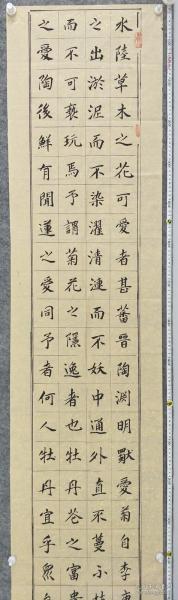 水陸草木之花可愛者甚蕃晉陶淵明獨愛菊自李唐
之出淤泥而不染濯清漣而不妖中通外直不蔓不枝
而不可褻玩焉予謂菊花之隱逸者也牡丹花之富貴
之愛陶後鮮有聞蓮之愛同予者何人牡丹宜乎眾